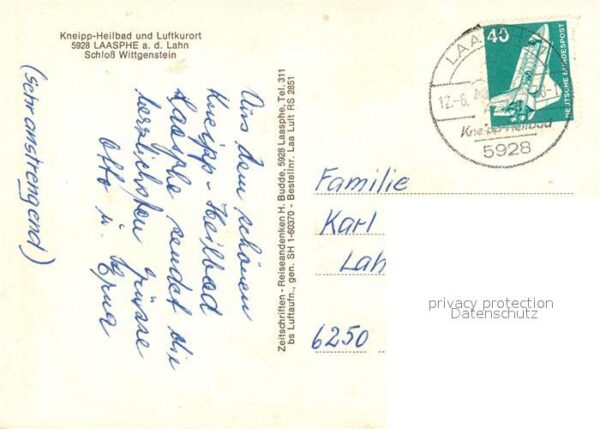 Kneipp-Heilbad und Luftkurort
5928 LAASPHE a. d. Lahn
Schloß Wittgenstein
(sehr anstrengend)
Aus dem schönen
Kneipp-Heilbad
Laasphe sendet die
herzlichsten Grüsse
Otto u. Erna
Zeitschriften - Reiseandenken H. Budde, 5928 Laasphe, Tel. 311
bs Luftaufn., gen. SH 1-60370 - Bestellnr. Laa Luft RS 2851
40
DEUTSCHE BUNDESPOST
LAA
12.-6.
Kneipp-Heilbad
5928
Familie
Karl
Lah
6250
privacy protection
Datenschutz